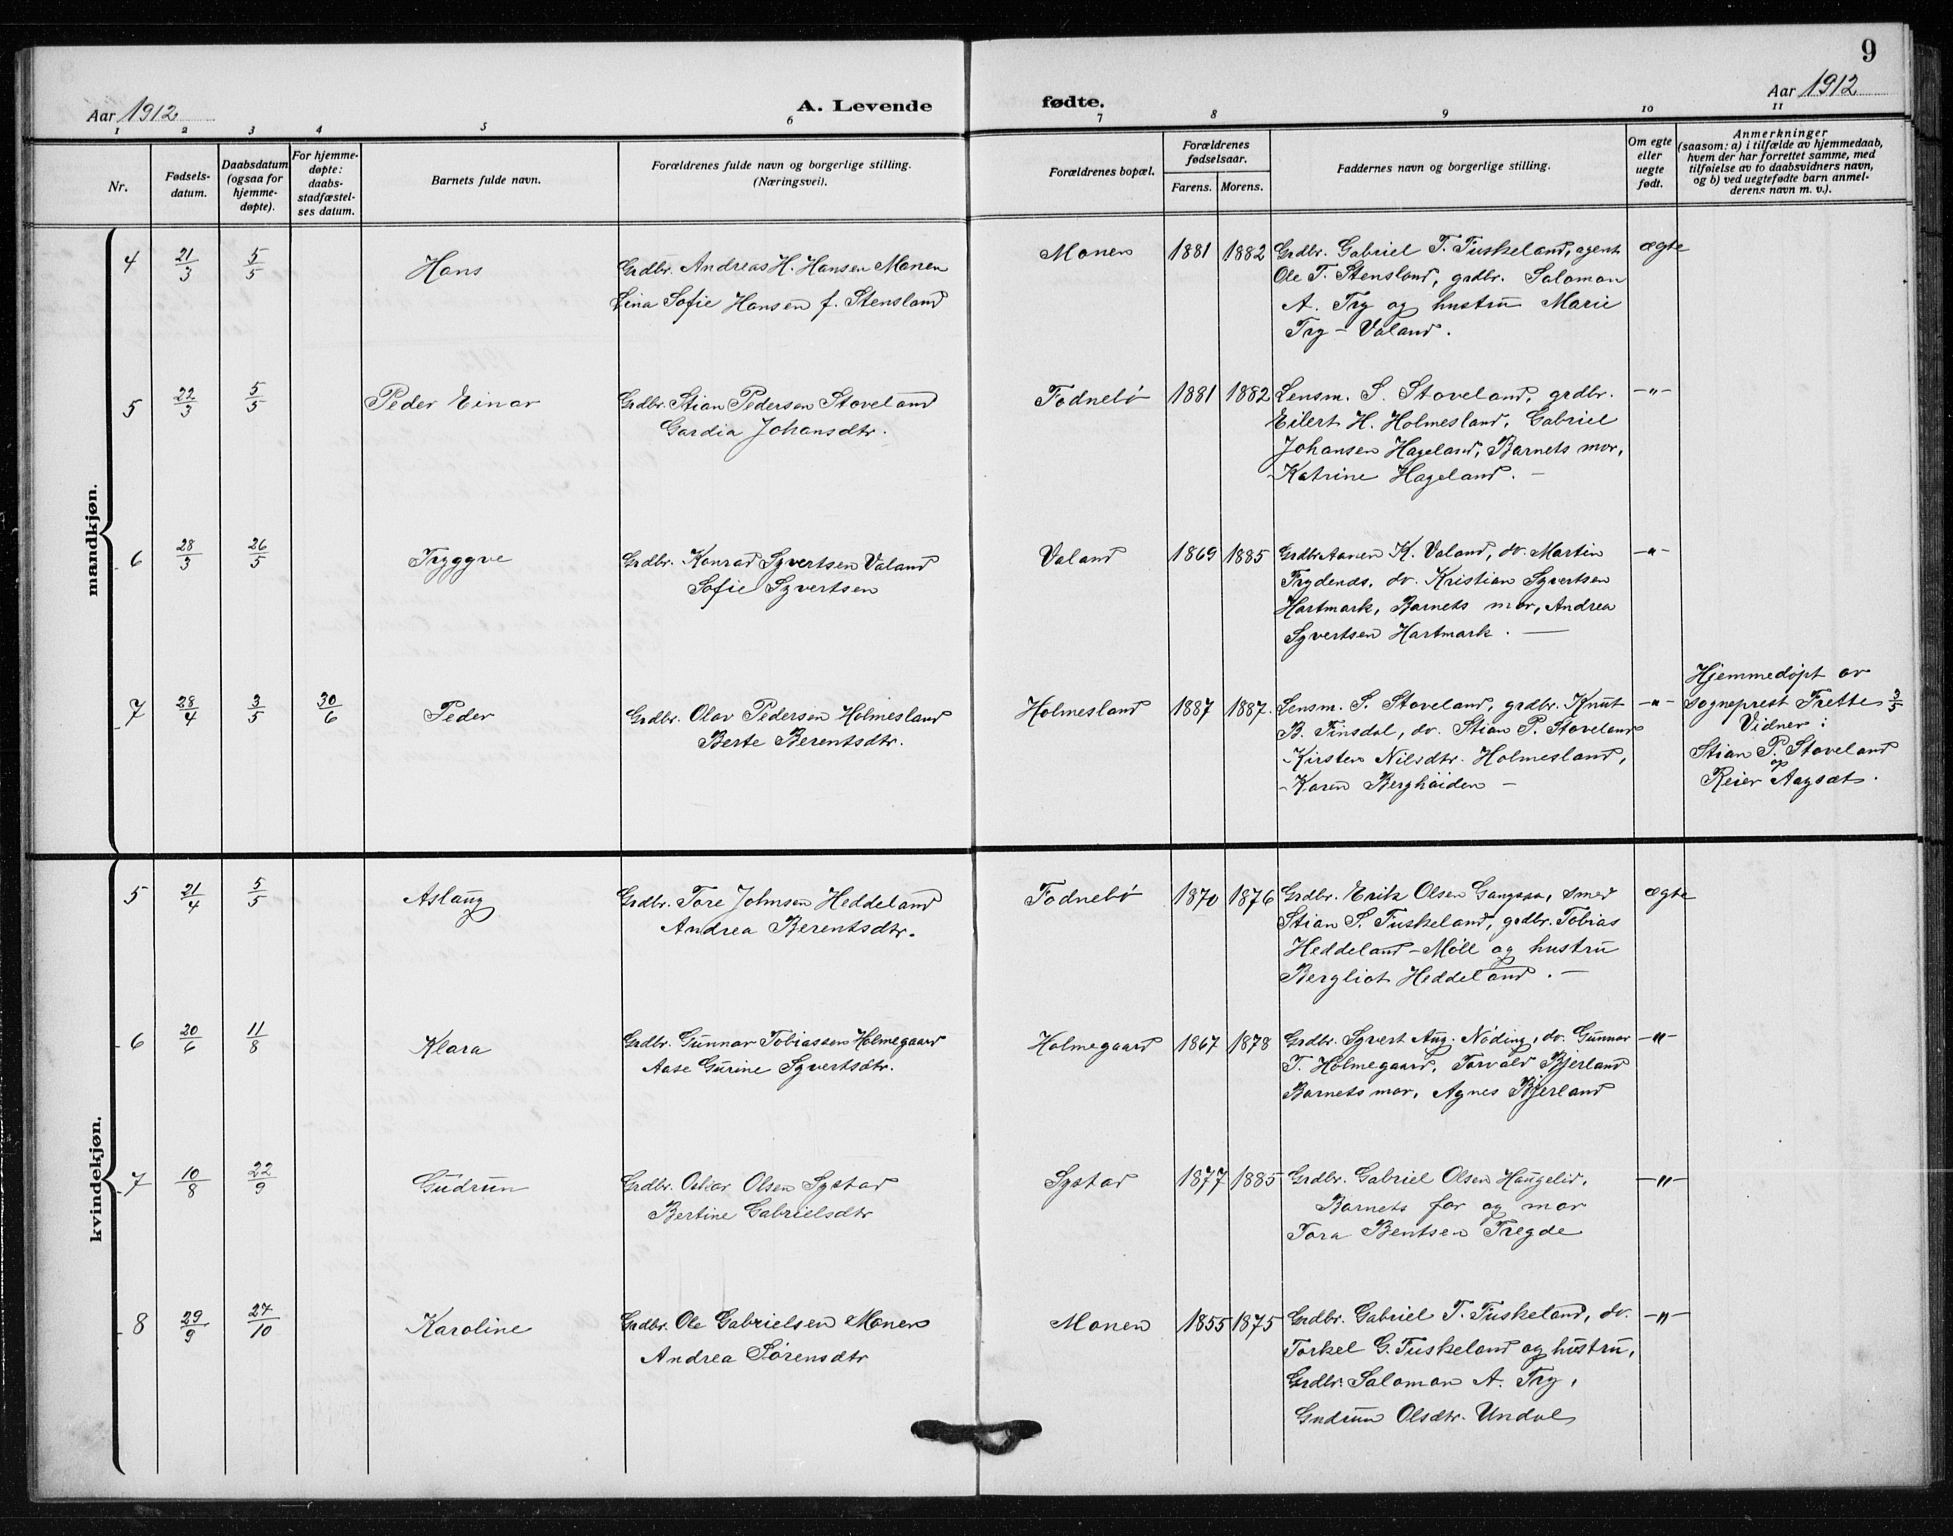 9
Aar 1912
A. Levende
fødte.
Aar 1912
1 2 3 4 5 6 7 8 9 10 11
Nr.
Fødsels-
datum.
Daabsdatum
(ogsaa for
hjemme-
døpte).
For hjemme-
døpte:
daabs-
stadfæstel-
ses datum.
Barnets fulde navn.
Forældrenes fulde navn og borgerlige stilling.
(Næringsvei).
Forældrenes bopæl.
Forældrenes
fødselsaar.
Farens. Morens.
Faddernes navn og borgerlige stilling.
Om egte
eller
uegte
født.
Anmerkninger
(saasom: a) i tilfælde av hjemmedaab,
hvem der har forrettet samme, med
tilføielse av to daabsvidners navn,
og b) ved uegtefødte barn anmel-
derens navn m. v.).
mandkjøn.
4 21/3 5/5 Hans
Grdbr. Andreas H. Hansen Monen
Lina Sofie Hansen f. Stensland
Monen 1881 1882
Grdbr. Gabriel T. Fuskeland, agent
Ole T. Stensland, grdbr. Salomon
A. Try og hustru Marie
Try - Valand.
ægte
5 22/3 5/5 Peder Einar
Grdbr. Stian Pedersen Stoveland
Gardia Johansdtr.
Fodnebø 1881 1882
Lensm. S. Stoveland, grdbr.
Eilert H. Holmesland, Gabriel
Johansen Hageland, Barnets mor,
Katrine Hageland. -
-"-
6 28/3 26/5 Tryggve
Grdbr. Konrad Syvertsen Valand
Sofie Syvertsen
Valand 1869 1885
Grdbr Aanen K. Valand, do. Martin
Trydends, do. Kristian Syvertsen
Hartmark, Barnets mor, Andrea
Syvertsen Hartmark. -
-"-
7 28/4 3/5 30/6 Peder
Grdbr. Olav Pedersen Holmesland
Berte Berentsdtr.
Holmesland 1887 1887.
Lensm. S. Stoveland, grdbr. Knut
B. Finsdal, do. Stian P. Stoveland
Kirsten Nilsdtr. Holmesland,
- Karen Berghöiden -
-"-
Hjemmedøpt av
sogneprest Frette 3/5
Vidner:
Stian P. Stoveland
og
Reier Aagsæt.
kvindekjøn.
5 21/4 5/5 Aslaug
Grdbr. Tore Johnsen Heddeland
Andrea Berentsdtr.
Fodnebø 1870 1876
Grdbr. Erik Olsen Gangsaa, smed
Stian S. Fuskeland, grdbr. Tobias
Heddeland - Møll og hustru
Bergliot Heddeland. -
ægte
6 20/6 11/8 Klara
Grdbr. Gunnar Tobiassen Holmegaard
Aase Gurine Syvertsdtr.
Holmegaard 1867 1878
Grdbr. Syvert Aug. Nøding, do. Gunnar
T. Holmegaard, Torvald Bjerland
Barnets mor, Agnes Bjerland
-"-
7 10/8 22/9 Gudrun
Grdbr. Oskar Olsen Systad
Bertine Gabrielsdtr
Systad 1877 1885
Grdbr. Gabriel Olsen Haugelid,
Barnets far og mor
Tora Bentsen Tregde
-"-
8 29/9 27/10 Karoline
Grdbr. Ole Gabrielsen Monen
Andrea Sørensdtr
Monen 1855 1875
Grdbr. Gabriel T. Fuskeland, do.
Torkel G. Fuskeland og hustru,
Grdbr. Salomon A. Try,
Gudrun Olsdtr. Undal
-"-